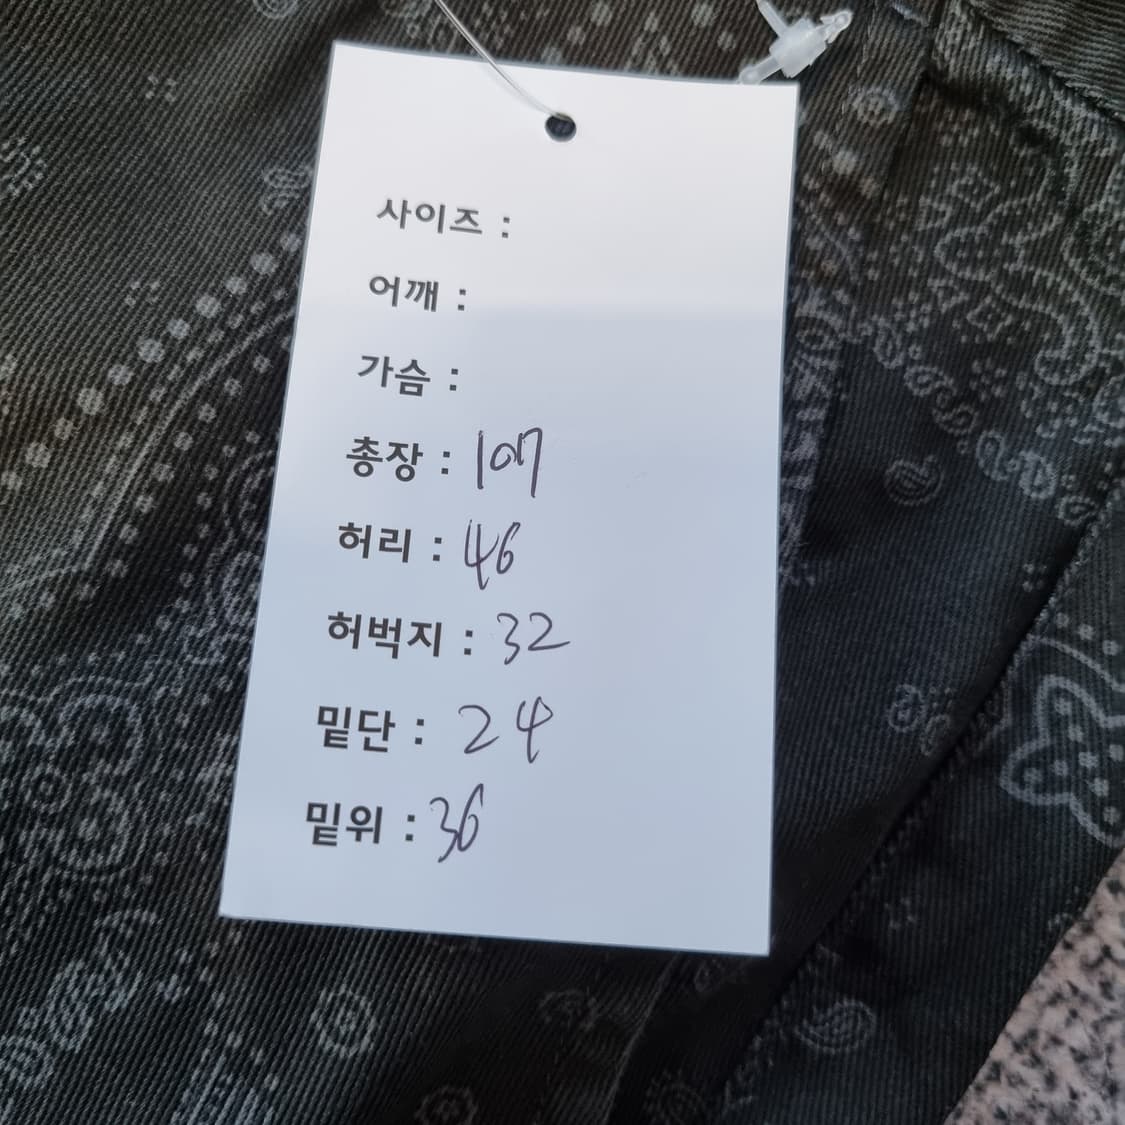 사이즈 :
어깨 :
가슴 :
총장 : 107
허리 : 46
허벅지 : 32
밑단 : 24
밑위 : 36